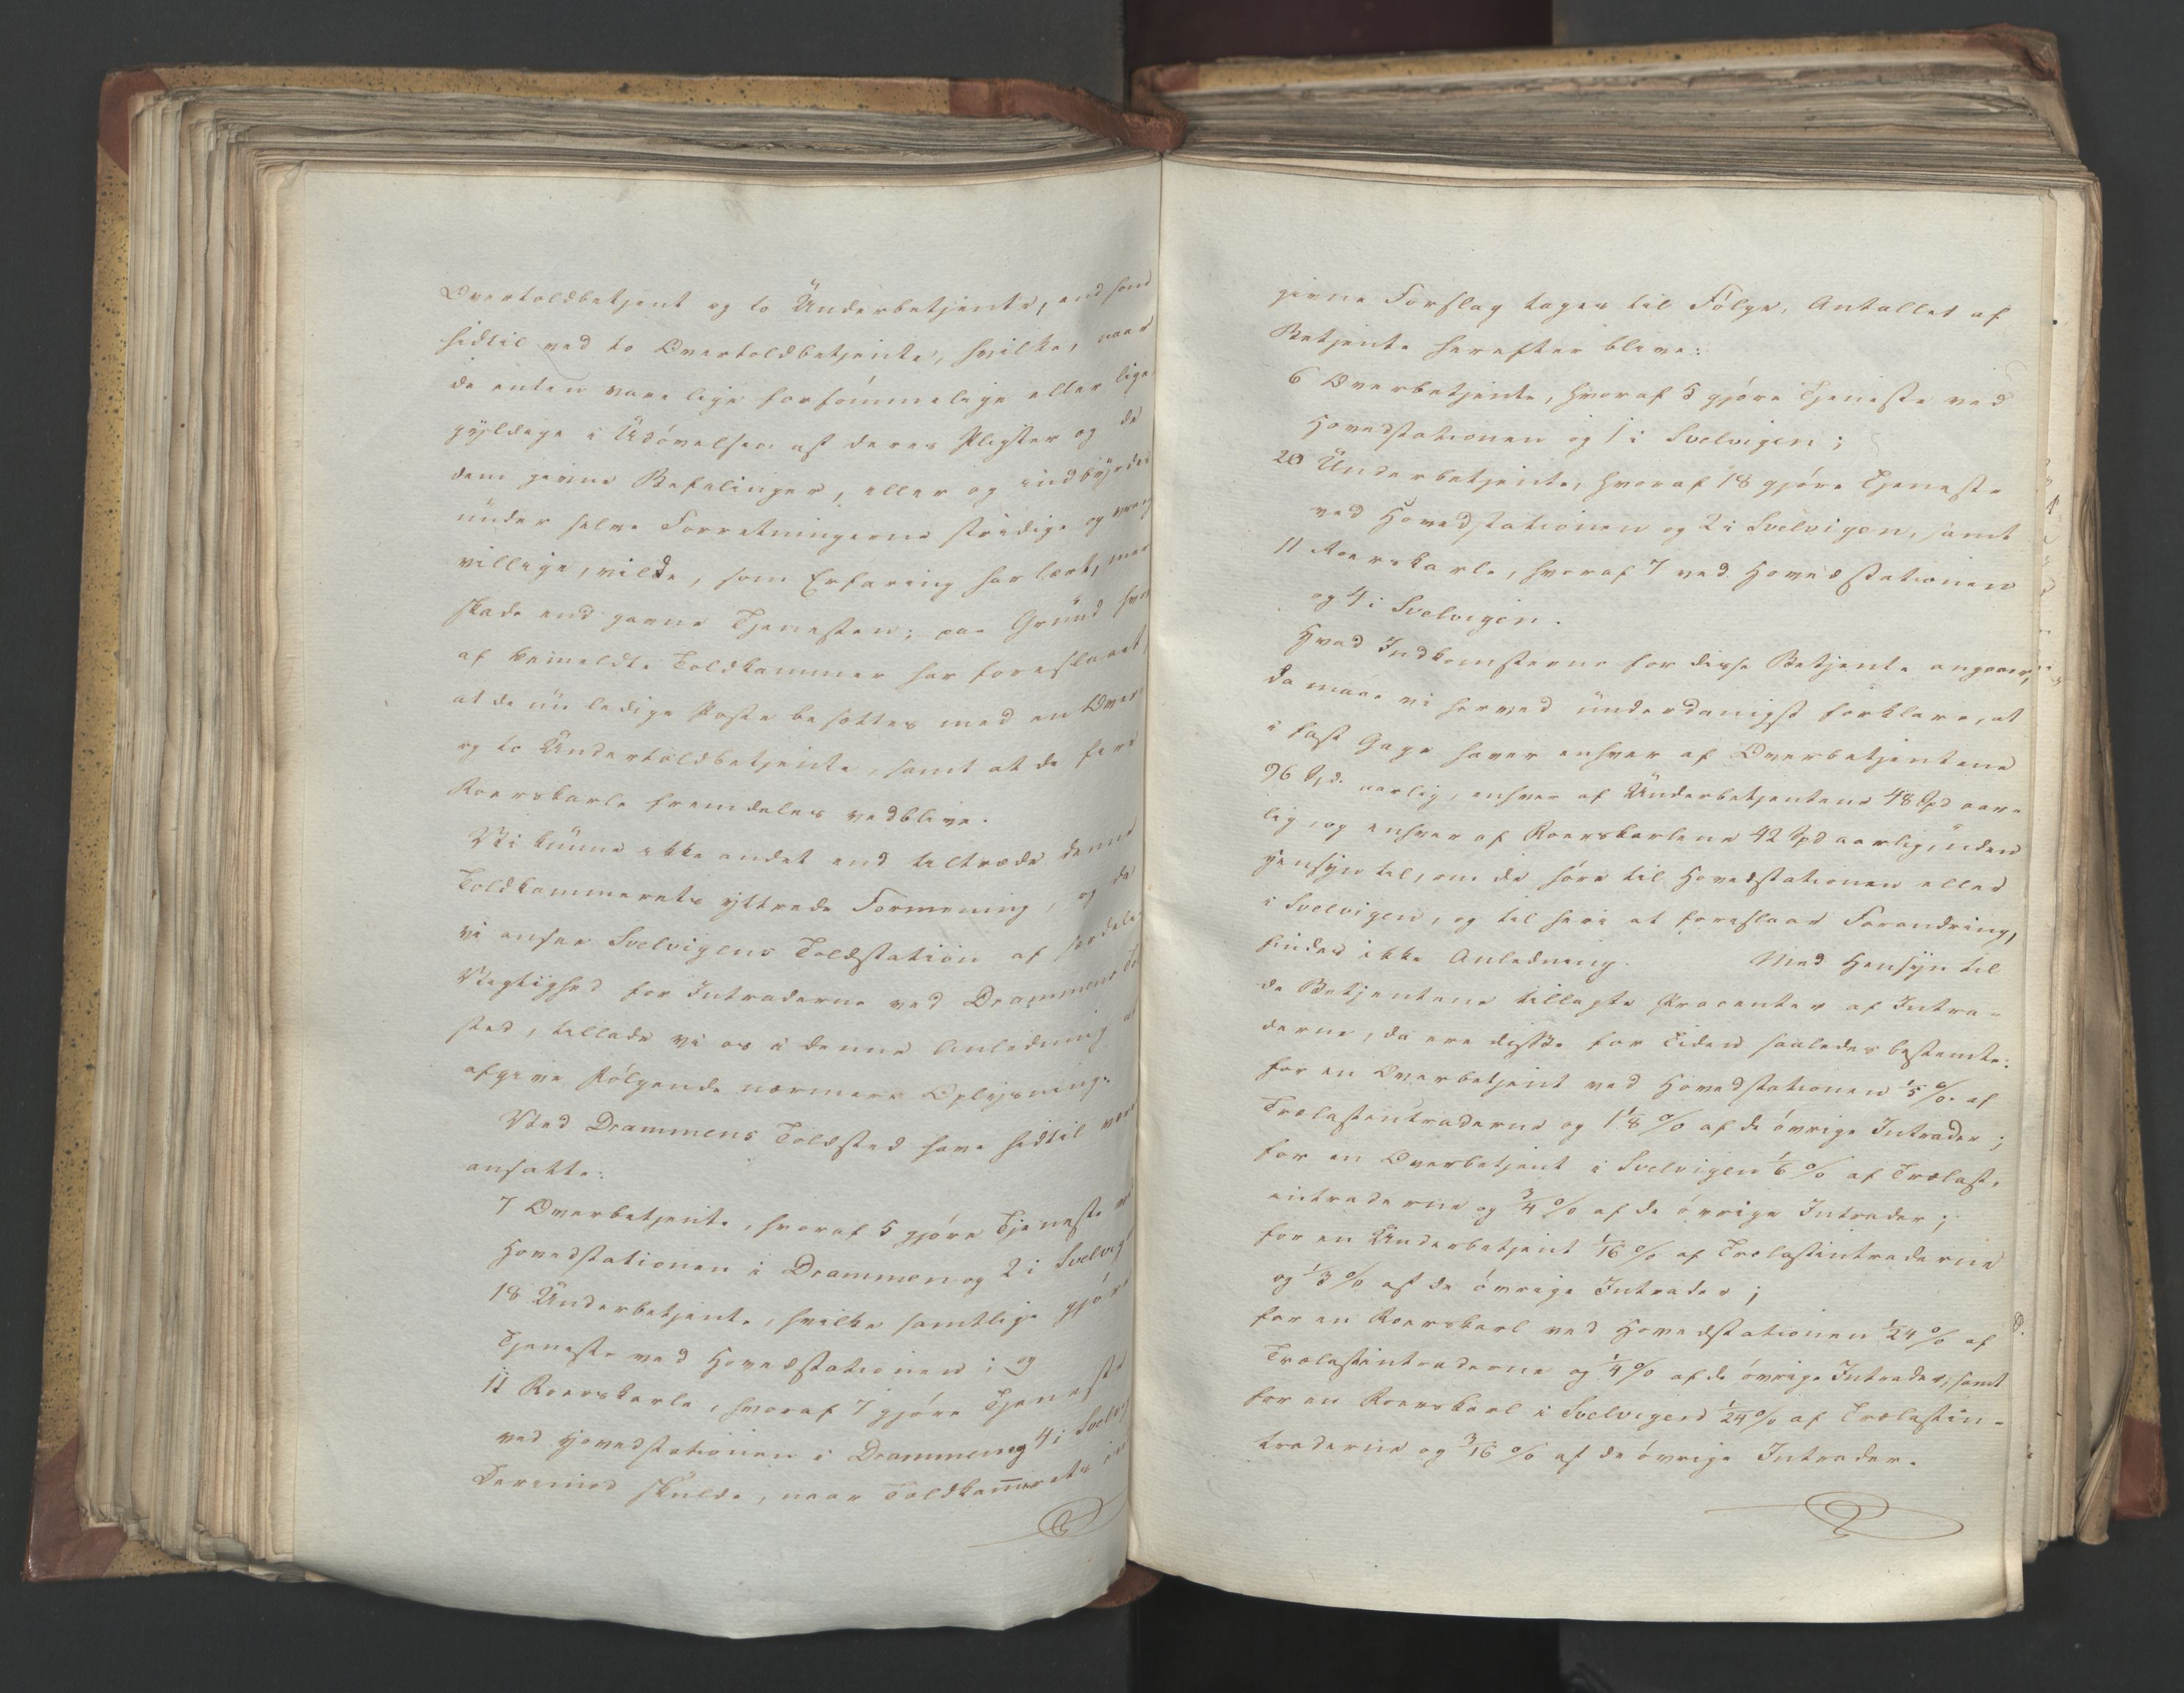 Overtoldbetjent og to Underbetjente, end som
hidtil ved to Overtoldbetjente, hvilke, naar
de enten vare lige forsømmelige eller lige
gyldige i Udøvelsen af deres Pligter og de
dem givne Befalinger, eller og indbyrdes
under selve Forretningerne stridige og vrang
villige, vilde, som Erfaring har lært, mer
skade end gavne Tjenesten; paa Grund hvor
af bemeldte Toldkammer har foreslaaet,
at de nu ledige Poste besættes med en Over
og to Undertoldbetjente, samt at de fire
Roerskarle fremdeles vedblive.
Vi kunne ikke andet end tiltræde denne
Toldkammerets yttrede Formening, og da
vi ansee Svelvigens Toldstation af særdeles
Vigtighed for Intraderne ved Drammens Told
sted, tillade vi os i denne Anledning at
afgive følgende nærmere Oplysning:
Ved Drammens Toldsted have hidtil været
ansatte:
7 Overbetjente, hvoraf 5 gjøre Tjeneste ved
Hovedstationen i Drammen og 2 i Svelvig
18 Underbetjente, hvilke samtlige gjøre
Tjeneste ved Hovedstationen; og
11 Roerskarle, hvoraf 7 gjøre Tjeneste
ved Hovedstationen i Drammen og 4 i Svelvig
Derimod skulde, naar Toldkammerets
givne Forslag tages til Følge, Antallet af
Betjente herefter blive:
6 Overbetjente, hvoraf 5 gjøre Tjeneste ved
Hovedstationen og 1 i Svelvigen;
20 Underbetjente, hvoraf 18 gjøre Tjeneste
ved Hovedstationen og 2 i Svelvigen, samt
11 Roerskarle, hvoraf 7 ved Hovedstationen
og 4 i Svelvigen.
Hvad Indkomsterne for disse Betjente angaaer,
da maae vi herved underdanigst forklare, at
i fast Gage haver enhver af Overbetjentene
96 Spd. aarlig, enhver af Underbetjentene 48 Spd aar-
lig, og enhver af Roerskarlene 42 Spd aarlig, uden
Hensyn til, om de høre til Hovedstationen eller
i Svelvigen, og til heri at foreslaae Forandring,
findes ikke Anledning. Med Hensyn til
de Betjentene tillagte Procenter af Intra-
derne, da ere disse for Tiden saaledes bestemte:
for en Overbetjent ved Hovedstationen 1/5 % af
Trælastintraderne og 1 1/8 % af de øvrige Intrader;
for en Overbetjent i Svelvigen 1/6 % af Trælast-
intraderne og 3/4 % af de øvrige Intrader;
for en Underbetjent 1/16 % af Trælastintraderne
og 1/3 % af de øvrige Intrader;
for en Roerskarl ved Hovedstationen 1/24 % af
Trælastintraderne og 1/4 % af de øvrige Intrader, samt
for en Roerskarl i Svelvigen 1/24 % af Trælastin-
traderne og 3/16 % af de øvrige Intrader.